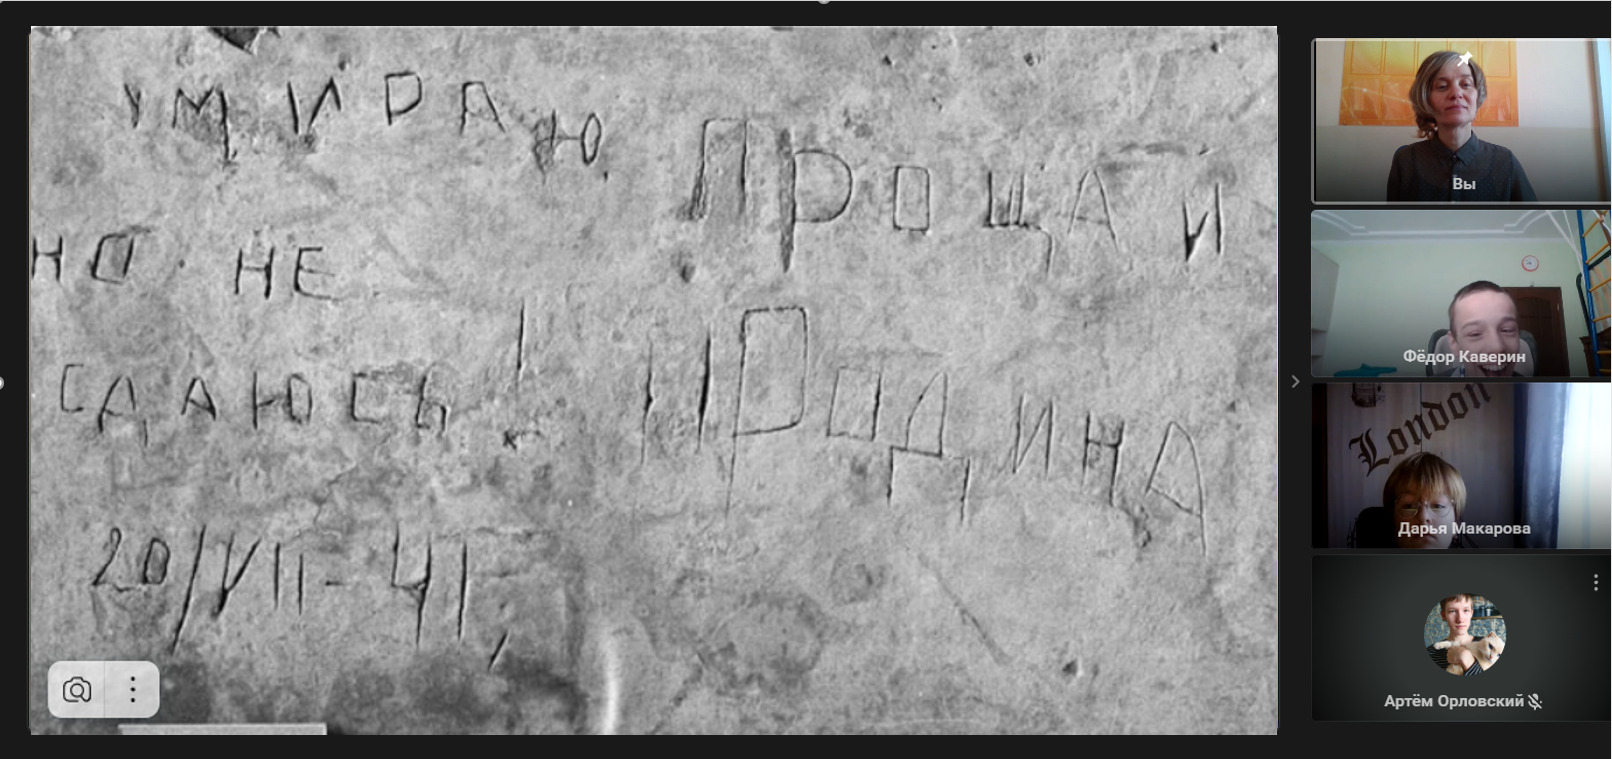 УМИРАЮ,
НО НЕ
СДАЮСЬ!
ПРОЩАЙ
РОДИНА
20/VII-41,
Вы
Фёдор Каверин
London
Дарья Макарова
Артём Орловский